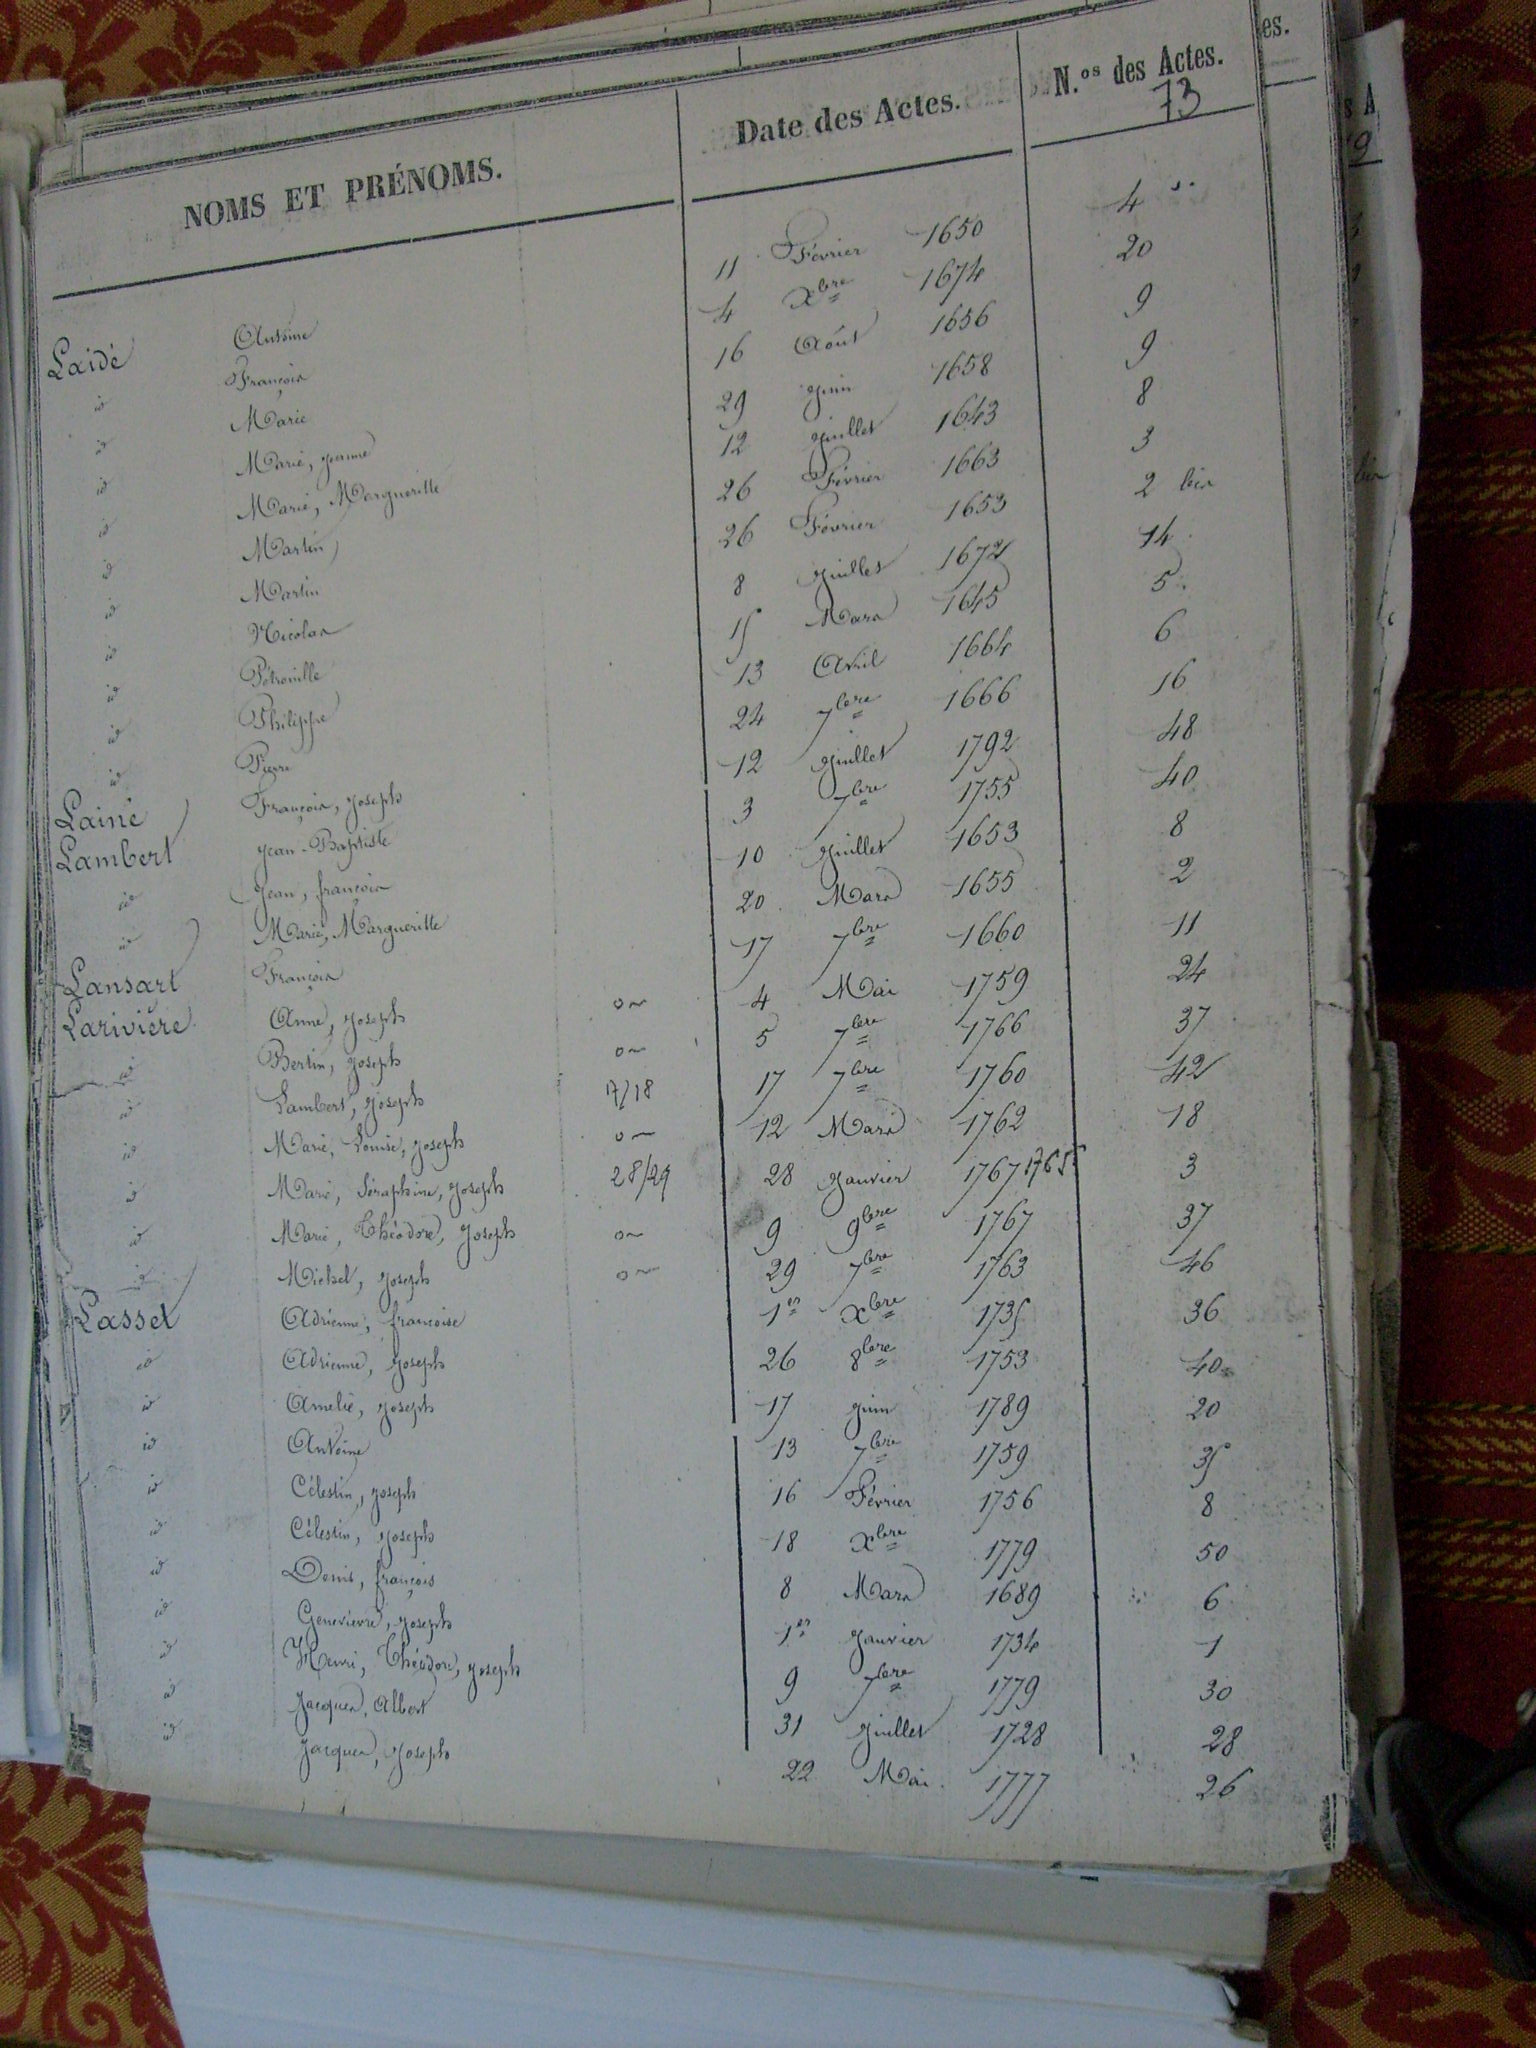 NOMS ET PRÉNOMS. Date des Actes. N.os des Actes. es.
73
Laidé Antoine 11 Février 1650 4
id François 4 Xbre 1674 20
id Marie 16 Août 1656 9
id Marie, Jeanne 29 Juin 1658 9
id Marie, Margueritte 12 Juillet 1643 8
id Martin 26 Février 1663 3
id Martin 26 Février 1653 2 bis
id Nicolas 8 Juillet 1672 14
id Pétronille 15 Mars 1645 5
id Philippe 13 Avril 1664 6
id Pierre 24 7bre 1666 16
Lainé François, Joseph 12 Juillet 1792 48
Lambert Jean-Baptiste 3 7bre 1755 40
id Jean, françois 10 Juillet 1653 8
id Marie, Margueritte 20 Mars 1655 2
Lansart François 17 7bre 1660 11
Larivière Anne, Joseph 4 Mai 1759 24
id Bertin, Joseph 5 7bre 1766 37
id Lambert, Joseph 17/18 17 7bre 1760 42
id Marie, Louise, Joseph 12 Mars 1762 18
id Marie, Séraphine, Joseph 28/29 28 Janvier 1767 1765 3
id Marie, Théodore, Joseph 9 9bre 1767 37
id Michel, Joseph 29 7bre 1763 46
Lasset Adrienne, françoise 1er Xbre 1735 36
id Adrienne, Joseph 26 8bre 1753 40
id Amélie, Joseph 17 Juin 1789 20
id Antoine 13 7bre 1759 35
id Célestin, Joseph 16 Février 1756 8
id Célestin, Joseph 18 Xbre 1779 50
id Denis, françois 8 Mars 1689 6
id Genevievre, Joseph 1er Janvier 1734 1
id Henri, Théodore, Joseph 9 7bre 1779 30
id Jacques, Albert 31 Juillet 1728 28
id Jacques, Joseph 22 Mai 1777 26